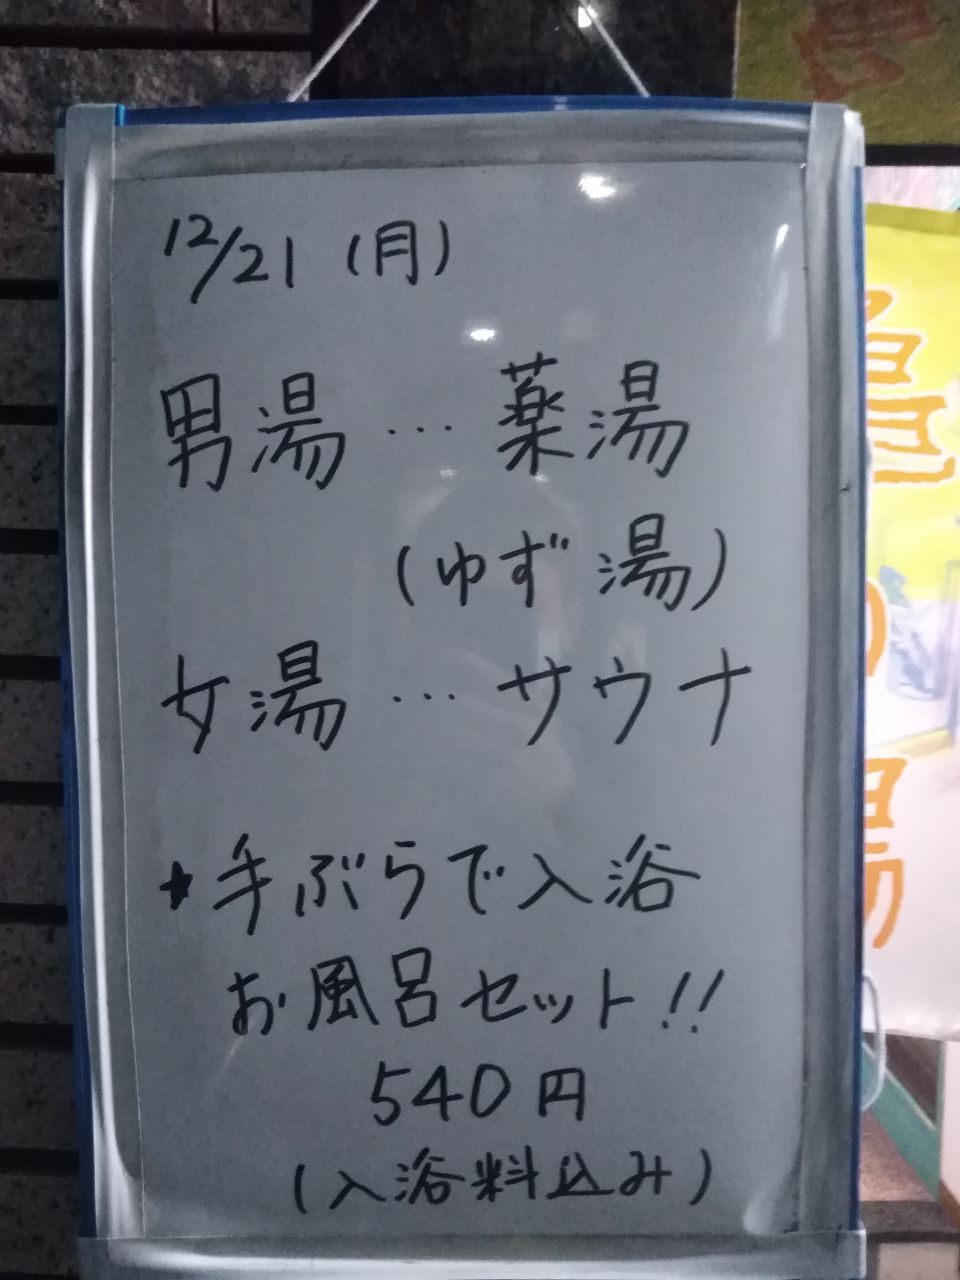 12/21 (月)
男湯…薬湯
(ゆず湯)
女湯…サウナ
★手ぶらで入浴
お風呂セット!!
540円
(入浴料込み)